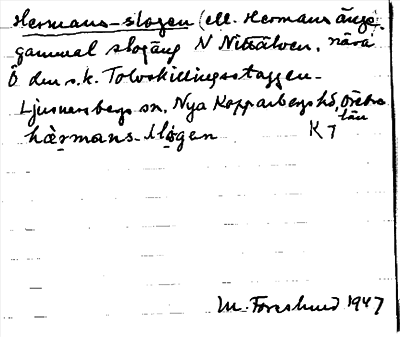 Hermans-slogen (ell. Hermans änge,
gammal slogäng N Nittälven, nära
Ö den s.k. Tolvskillingsstaggen.
Ljusnarsbergs sn, Nya Kopparbergs hd, Örebro
län
hæ̀rmans-slọgen K7
M. Foreslund 1947